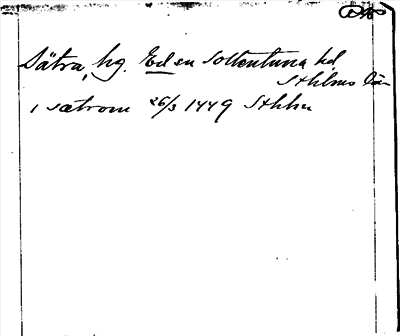 Sätra, hg. Ed sn Sollentuna hd
Sthlms län
i sætrom 26/3 1449 Sthlm